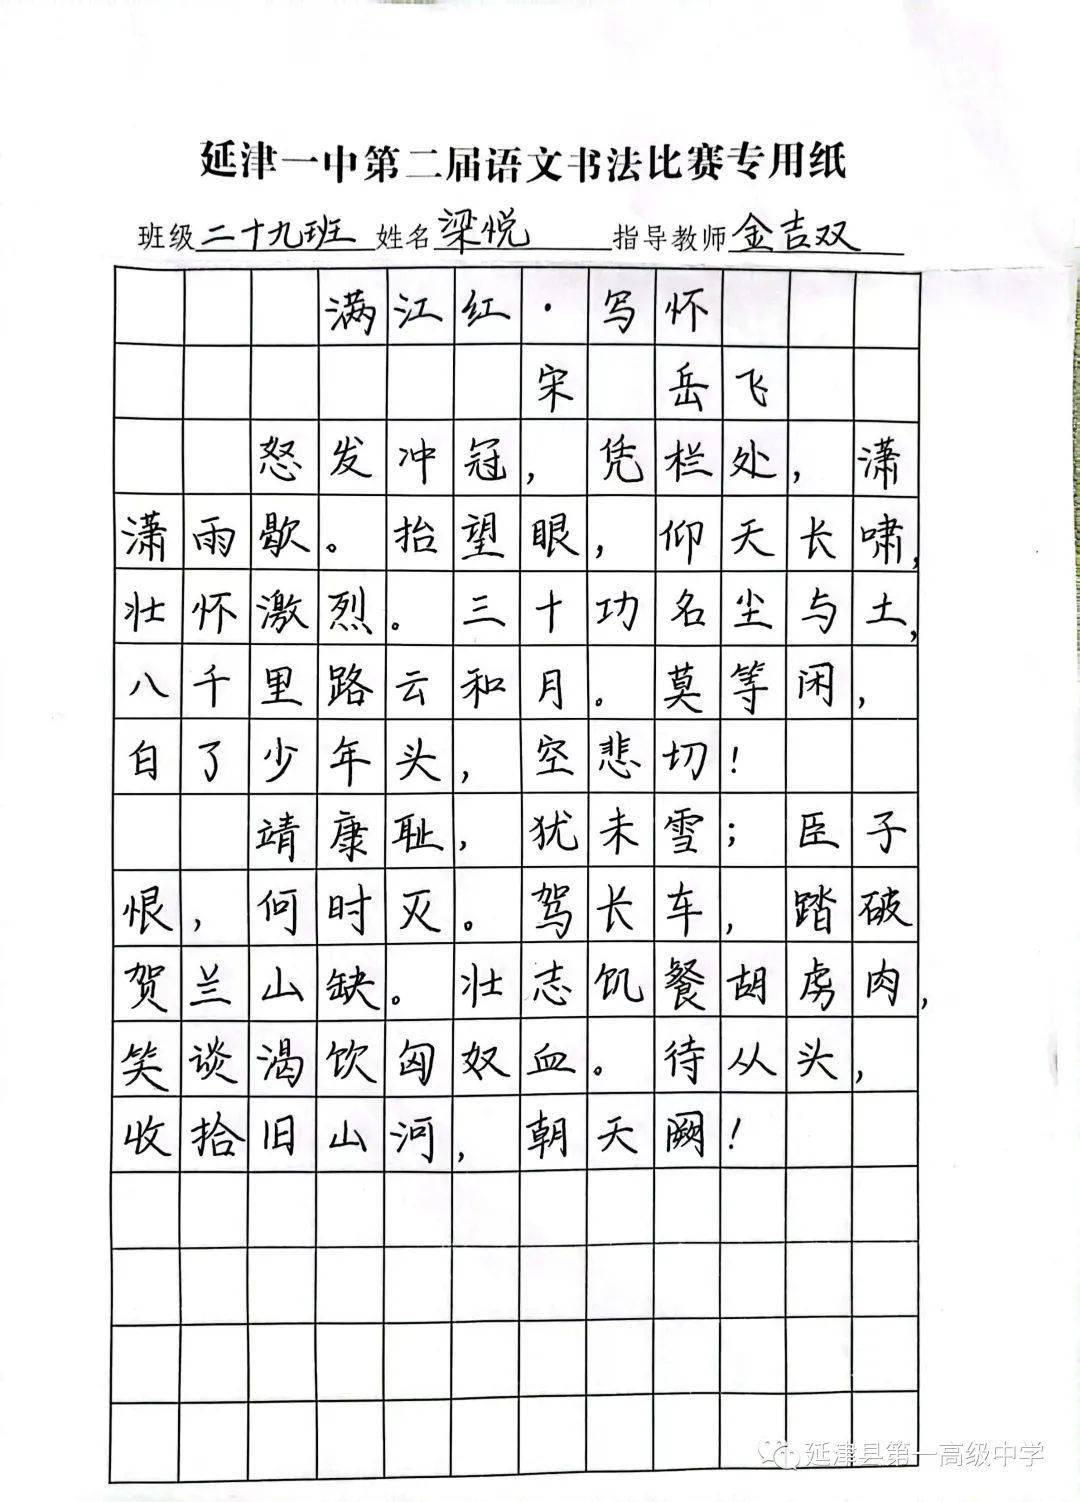 延津一中第二届语文书法比赛专用纸
班级二十九班 姓名梁悦 指导教师金吉双
满江红·写怀
宋 岳飞
怒发冲冠，凭栏处，潇
潇雨歇。抬望眼，仰天长啸，
壮怀激烈。三十功名尘与土，
八千里路云和月。莫等闲，
白了少年头，空悲切！
靖康耻，犹未雪；臣子
恨，何时灭。驾长车，踏破
贺兰山缺。壮志饥餐胡虏肉，
笑谈渴饮匈奴血。待从头，
收拾旧山河，朝天阙！
延津县第一高级中学